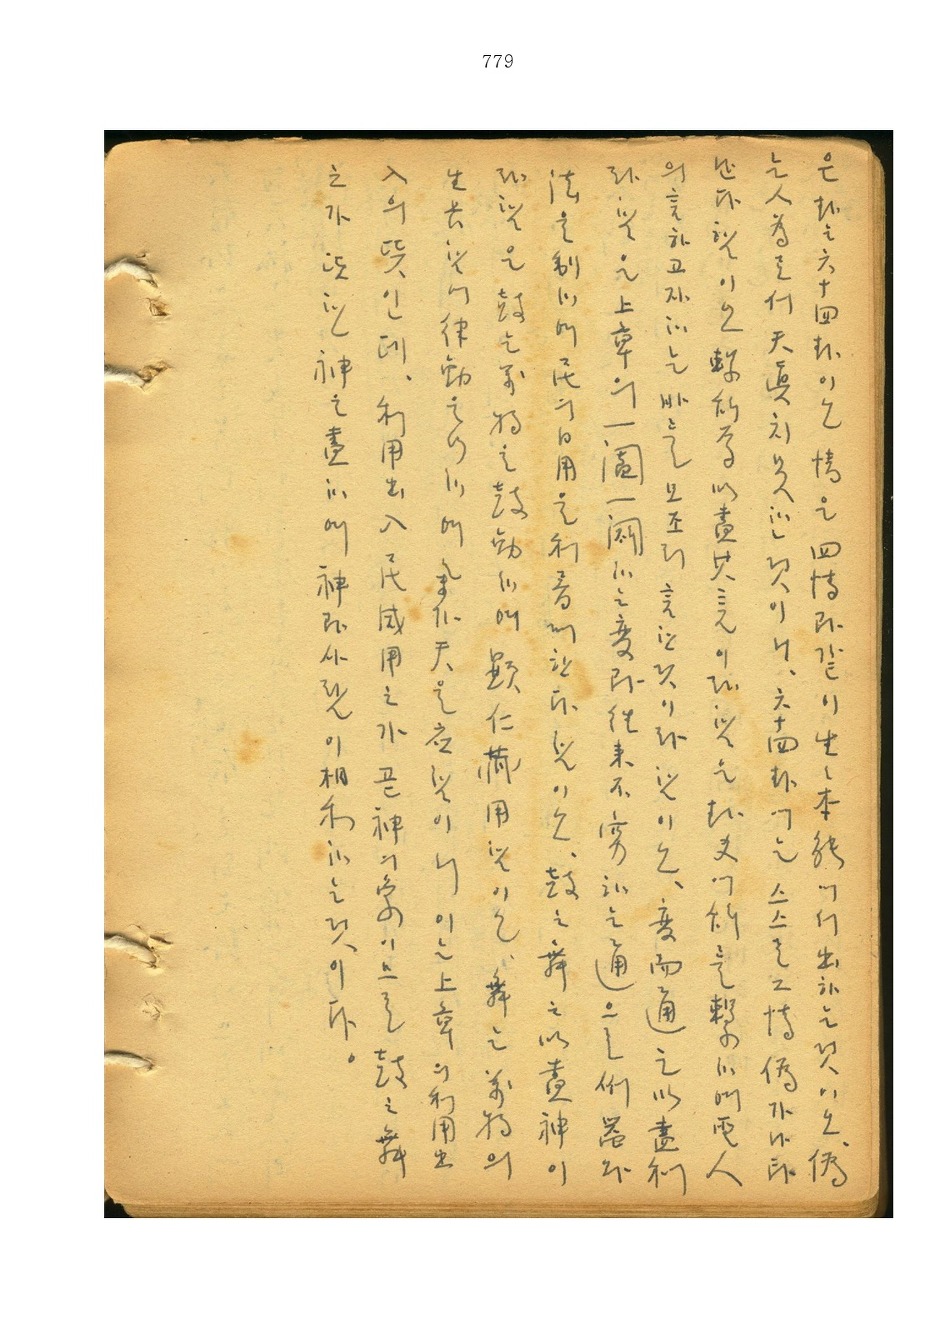 779
은 卦는 六十四卦이오 情은 四情과 같이 生生本能에서 出하는 것이오、偽
는 人為로서 天眞치 못한 것이니、六十四卦에는 스스로 그 情偽가 나타
난다 함이오 繫辭焉以盡其言이라 함은 卦爻에 辭를 繫하여 聖人
의 言하고자 하는 바를 모조리 言한 것이라 함이오、變而通之以盡利
라 함은 上章의 一闔一闢하는 變과 往來不窮하는 通으로 制器하
法을 制하여 民의 日用을 利롭게 한다 함이오、鼓之舞之以盡神이
라 함은 鼓는 萬物을 鼓動하여 顯仁藏用함이오、舞는 萬物의
生長함에 律動을 하여 天을 應함이니 이는 上章의 利用出
入의 뜻인데、利用出入民咸用之가 곧 神의 象이므로 鼓之舞
之가 또한 神을 盡하여 神과 사람이 相和하는 것이다。